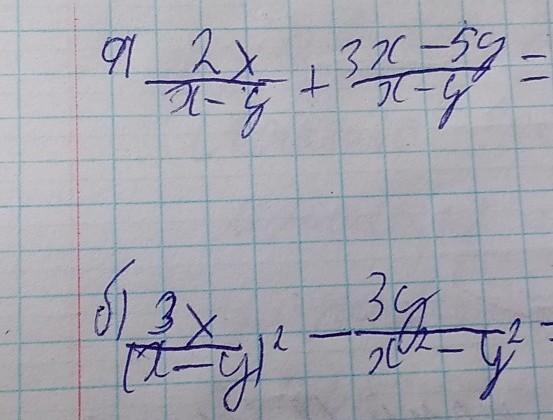 а) 2x/(x-y) + (3x-5y)/(x-y) =
б) 3x/(x-y)² - 3y/(x²-y²) =